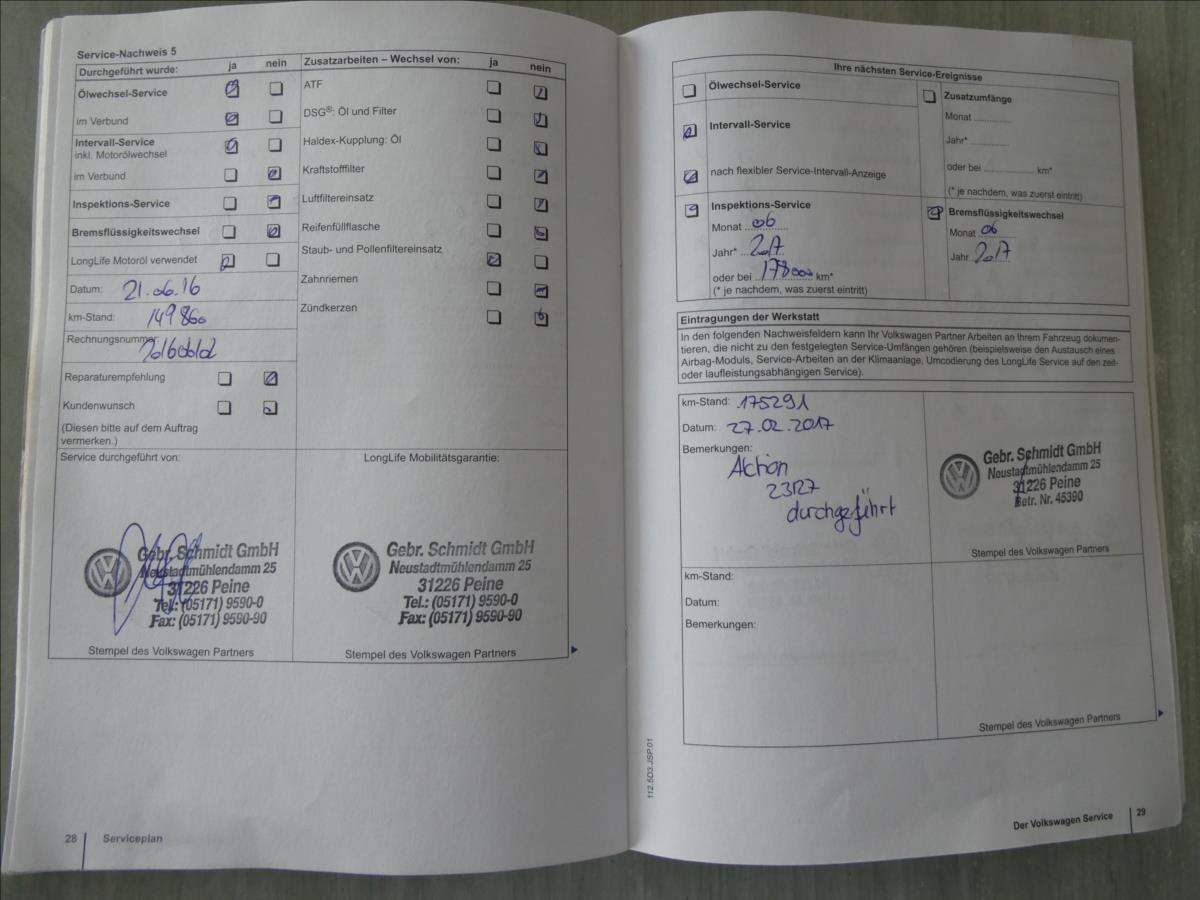 Service-Nachweis 5
Durchgeführt wurde: ja nein
Ölwechsel-Service
im Verbund
Intervall-Service
inkl. Motorölwechsel
im Verbund
Inspektions-Service
Bremsflüssigkeitswechsel
LongLife Motoröl verwendet
Datum: 21.06.16
km-Stand: 149860
Rechnungsnummer
Reparaturempfehlung
Kundenwunsch
(Diesen bitte auf dem Auftrag
vermerken.)
Zusatzarbeiten – Wechsel von: ja nein
ATF
DSG®: Öl und Filter
Haldex-Kupplung: Öl
Kraftstofffilter
Luftfiltereinsatz
Reifenfüllflasche
Staub- und Pollenfiltereinsatz
Zahnriemen
Zündkerzen
Service durchgeführt von:
Gebr. Schmidt GmbH
Neustadtmühlendamm 25
31226 Peine
Tel.: (05171) 9590-0
Fax: (05171) 9590-90
Stempel des Volkswagen Partners
LongLife Mobilitätsgarantie:
Gebr. Schmidt GmbH
Neustadtmühlendamm 25
31226 Peine
Tel.: (05171) 9590-0
Fax: (05171) 9590-90
Stempel des Volkswagen Partners
28 Serviceplan
Ihre nächsten Service-Ereignisse
Ölwechsel-Service
Intervall-Service
nach flexibler Service-Intervall-Anzeige
Zusatzumfänge
Monat
Jahr*
oder bei km*
(* je nachdem, was zuerst eintritt)
Inspektions-Service
Monat 06
Jahr* 2017
oder bei 178000 km*
(* je nachdem, was zuerst eintritt)
Bremsflüssigkeitswechsel
Monat 06
Jahr 2017
Eintragungen der Werkstatt
In den folgenden Nachweisfeldern kann Ihr Volkswagen Partner Arbeiten an Ihrem Fahrzeug dokumen-
tieren, die nicht zu den festgelegten Service-Umfängen gehören (beispielsweise den Austausch eines
Airbag-Moduls, Service-Arbeiten an der Klimaanlage, Umcodierung des LongLife Service auf den zeit-
oder laufleistungsabhängigen Service).
km-Stand: 175291
Datum: 27.02.2017
Bemerkungen:
Aktion
23R7
durchgeführt
Gebr. Schmidt GmbH
Neustadtmühlendamm 25
31226 Peine
Betr. Nr. 45390
Stempel des Volkswagen Partners
km-Stand:
Datum:
Bemerkungen:
Stempel des Volkswagen Partners
112.5D3.JSP.01
Der Volkswagen Service 29